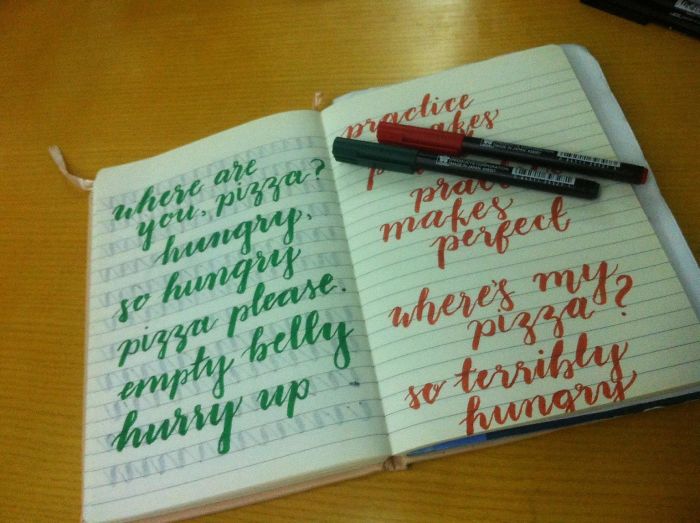 where are
you, pizza?
hungry,
so hungry
pizza please.
empty belly
hurry up
practice
makes
practice
makes
perfect
where's my
pizza?
so terribly
hungry